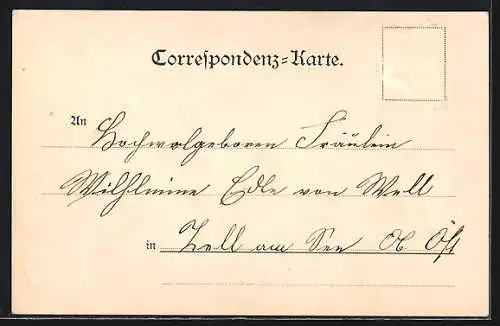 Correspondenz-Karte.
An Hochwolgeboren Fräulein
Wilhlmine Edle von Well
in Zell am See Ob Öst